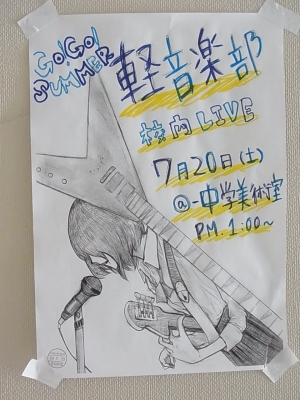 GO!GO!
SUMMER
軽音楽部
校内LIVE
7月20日(土)
@-中学美術室
PM. 1:00~